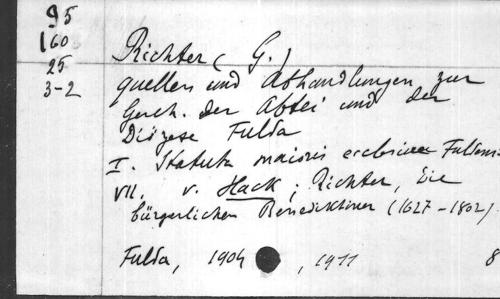 95
160
25
3-2
Richter (G.)
quellen und Abhandlungen zur
Gesch. der Abtei und der
Diözese Fulda
I. Statuta maioris ecclesiae Fuldens.
VII. v. Hack; Richter, Die
bürgerlichen Benediktiner (1627-1802).
Fulda, 1904, 1911 8